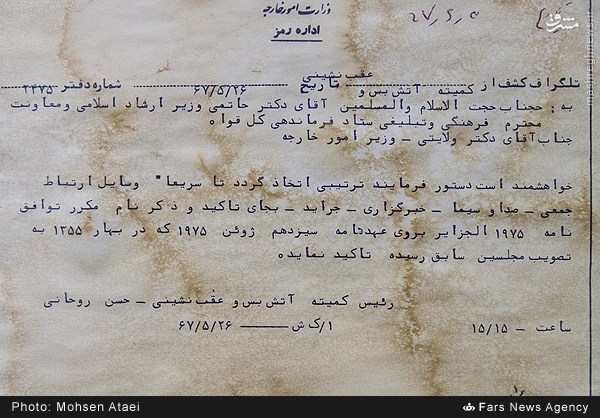 وزارت امور خارجه
اداره رمز
۶۷٫۶٫۵
مشرق
mashreghnews.ir
تلگراف کشف از کمیته آتش بس و عقب نشینی تاریخ ۶۷/۵/۲۶ شماره دفتر ۲۴۷۵
به : جنحناب حجت الاسلام والمسلمین آقای دکتر حاتمی وزیر ارشاد اسلامی ومعاونت
محترم فرهنگی وتبلیغی ستاد فرماندهی کل قواه
جناب آقای دکتر ولایتی ــ وزیر امور خارجه
خواهشمند است دستور فرمایند ترتیبی اتخاذ گردد تا سریعا" وسایل ارتباط
جمعی ــ صدا و سیما ــ خبرگزاری ــ جراید ــ بجای تاکید و ذکر نام مکرر توافق
نامه ۱۹۷۵ الجزایر بروی عهدنامه سیزدهم ژوئن ۱۹۷۵ که در بهار ۱۳۵۵ به
تصویب مجلسین سابق رسیده تاکید نمایده
رئیس کمیته آتش بس و عقب نشینی ــ حسن روحانی
ساعت ــ ۱۵/۱۵ ۱/ک ش ــــــ ۶۷/۵/۲۶
Photo: Mohsen Ataei
Fars News Agency